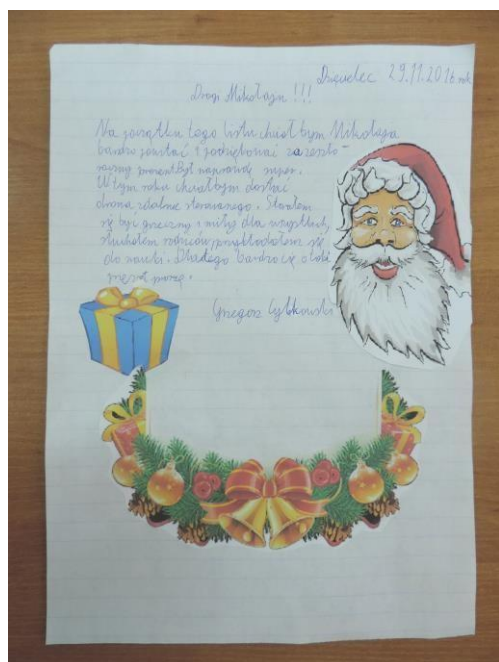 29.11.2016 rok
Drogi Mikołaju !!!
Na początku tego listu chciał bym Mikołaja
bardzo powitać i podziękować za zeszło-
roczny prezent był naprawdę super.
W tym roku chciałbym dostać
drona zdalnie sterowanego. Starałem
się być grzeczny i miły dla wszystkich,
słuchałem rodziców, przykładałem się
do nauki. Dlatego bardzo Cię o
proszę.
Grzegorz